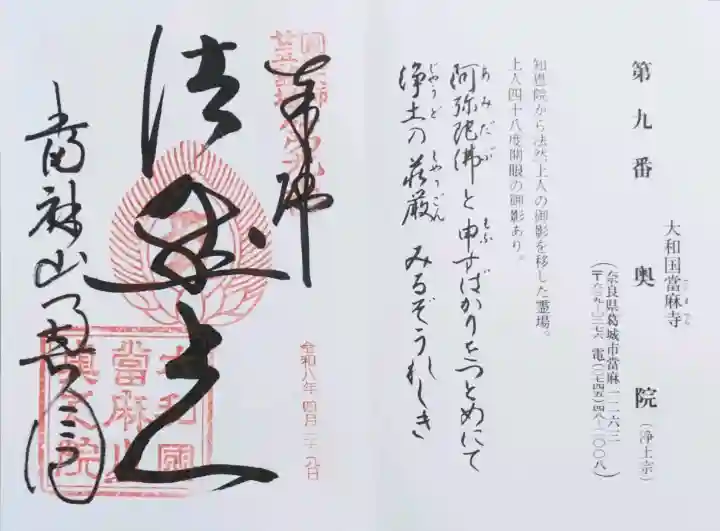 第九番
大和国當麻寺
奥院(浄土宗)
(奈良県葛城市當麻一二六三
〒六三九ー〇二七六 電(〇七四五)四八ー二〇〇八)
知恩院から法然上人の御影を移した霊場。
上人四十八度開眼の御影あり。
阿弥陀佛と申すばかりをつとめにて
あみだぶ もふ
浄土の荘厳 みるぞうれしき
じやうど しやうごん
奉拝
法然上人
當麻山
令和八年四月二十八日
大和國
當麻山
奥之院